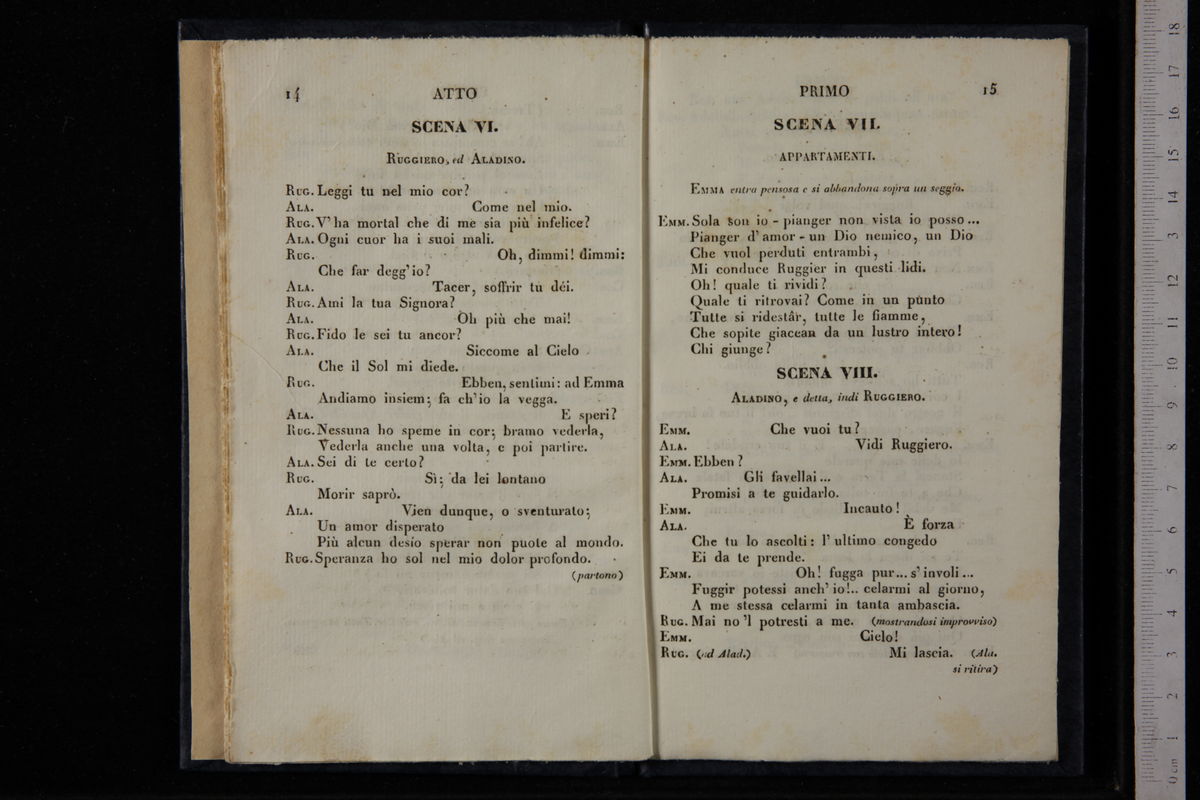 14 ATTO
SCENA VI.
RUGGIERO, ed ALADINO.
RUG. Leggi tu nel mio cor?
ALA. Come nel mio.
RUG. V'ha mortal che di me sia più infelice?
ALA. Ogni cuor ha i suoi mali.
RUG. Oh, dimmi! dimmi:
Che far degg'io?
ALA. Tacer, soffrir tu déi.
RUG. Ami la tua Signora?
ALA. Oh più che mai!
RUG. Fido le sei tu ancor?
ALA. Siccome al Cielo
Che il Sol mi diede.
RUG. Ebben, sentimi: ad Emma
Andiamo insiem; fa ch'io la vegga.
ALA. E speri?
RUG. Nessuna ho speme in cor; bramo vederla,
Vederla anche una volta, e poi partire.
ALA. Sei di te certo?
RUG. Sì; da lei lontano
Morir saprò.
ALA. Vien dunque, o sventurato;
Un amor disperato
Più alcun desío sperar non puote al mondo.
RUG. Speranza ho sol nel mio dolor profondo.
(partono)
PRIMO 15
SCENA VII.
APPARTAMENTI.
EMMA entra pensosa e si abbandona sopra un seggio.
EMM. Sola son io - pianger non vista io posso...
Pianger d'amor - un Dio nemico, un Dio
Che vuol perduti entrambi,
Mi conduce Ruggier in questi lidi.
Oh! quale ti rividi?
Quale ti ritrovai? Come in un punto
Tutte si ridestâr, tutte le fiamme,
Che sopite giacean da un lustro intero!
Chi giunge?
SCENA VIII.
ALADINO, e detta, indi RUGGIERO.
EMM. Che vuoi tu?
ALA. Vidi Ruggiero.
EMM. Ebben?
ALA. Gli favellai...
Promisi a te guidarlo.
EMM. Incauto!
ALA. È forza
Che tu lo ascolti: l'ultimo congedo
Ei da te prende.
EMM. Oh! fugga pur... s'involi...
Fuggir potessi anch'io!.. celarmi al giorno,
A me stessa celarmi in tanta ambascia.
RUG. Mai no'l potresti a me. (mostrandosi improvviso)
EMM. Cielo!
RUG. (ad Alad.) Mi lascia. (Ala.
si ritira)
0 cm 1 2 3 4 5 6 7 8 9 10 11 12 13 14 15 16 17 18